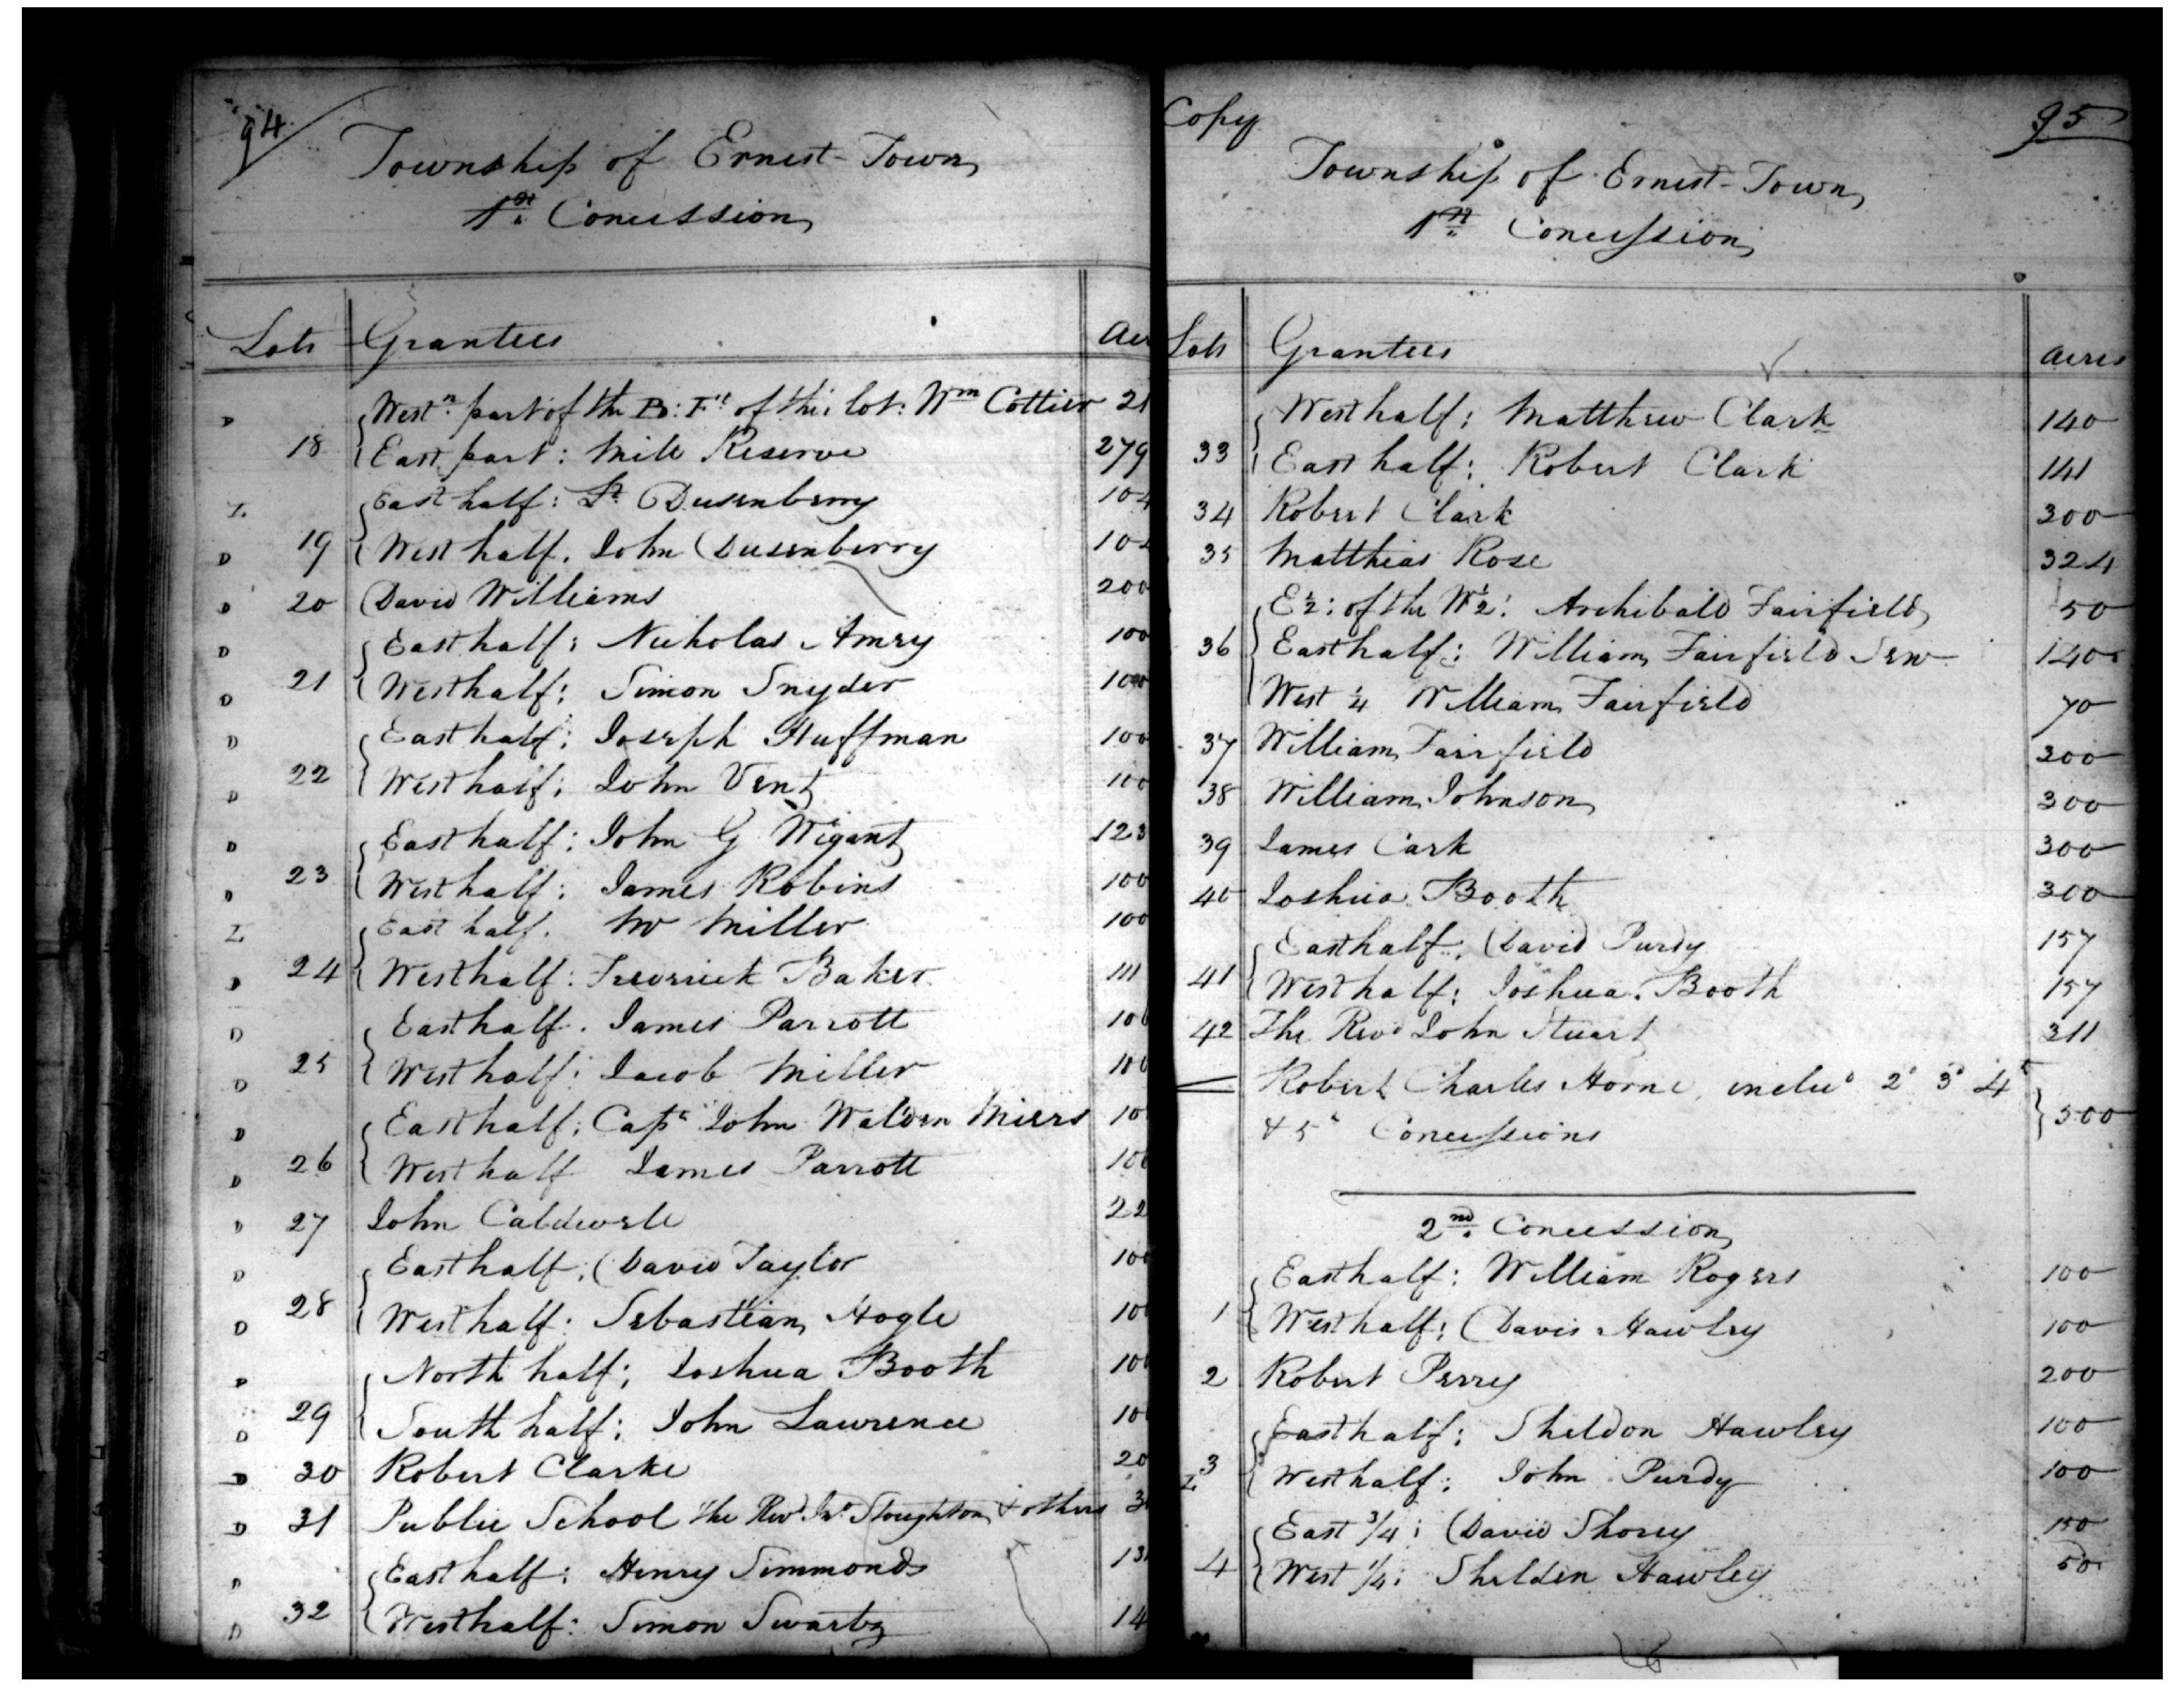 94
Township of Ernest-Town
1st Concession
Lots Grantees
Westn part of the B: Ft of this lot: Wm Cottier 21
18 East part: Mill Reserve 279
East half: Lt Dusenberry 104
19 West half. John Dusenberry 104
20 David Williams 200
East half: Nicholas Amey 100
21 West half: Simon Snyder 100
East half: Joseph Huffman 100
22 West half: John Vent 100
East half: John G Wigant 123
23 West half: James Robins 100
East half. Miller 100
24 West half: Frederick Baker 111
East half. James Parrott 100
25 West half: Jacob Miller 100
East half: Capt John Walden Miers 10
26 West half James Parrott 100
27 John Caldwell 22
East half: David Taylor 100
28 West half: Sebastian Hogle 100
North half; Joshua Booth 100
29 South half: John Lawrence 10
30 Robert Clarke 20
31 Public School the Revd Jno Stoughton & others 3
East half: Henry Simmonds 13
32 West half: Simon Swartz 14
Copy 95
Township of Ernest-Town
1st Concession
Lots Grantees Acres
West half: Matthew Clark 140
33 East half: Robert Clark 141
34 Robert Clark 300
35 Matthias Rose 324
E 1/2: of the W 1/2: Archibald Fairfield 50
36 East half: William Fairfield Senr 140
West 1/4 William Fairfield 70
37 William Fairfield 300
38 William Johnson 300
39 James Cark 300
40 Joshua Booth 300
East half. David Purdy 157
41 West half: Joshua Booth 157
42 The Revd John Stuart 311
Robert Charles Horne, includ 2d 3d 4t
& 5t Concessions 500
2nd Concession
East half: William Rogers 100
1 West half: Davis Hawley 100
2 Robert Perry 200
East half: Sheldon Hawley 100
3 West half: John Purdy 100
East 3/4: David Shorey 150
4 West 1/4: Sheldin Hawley 50